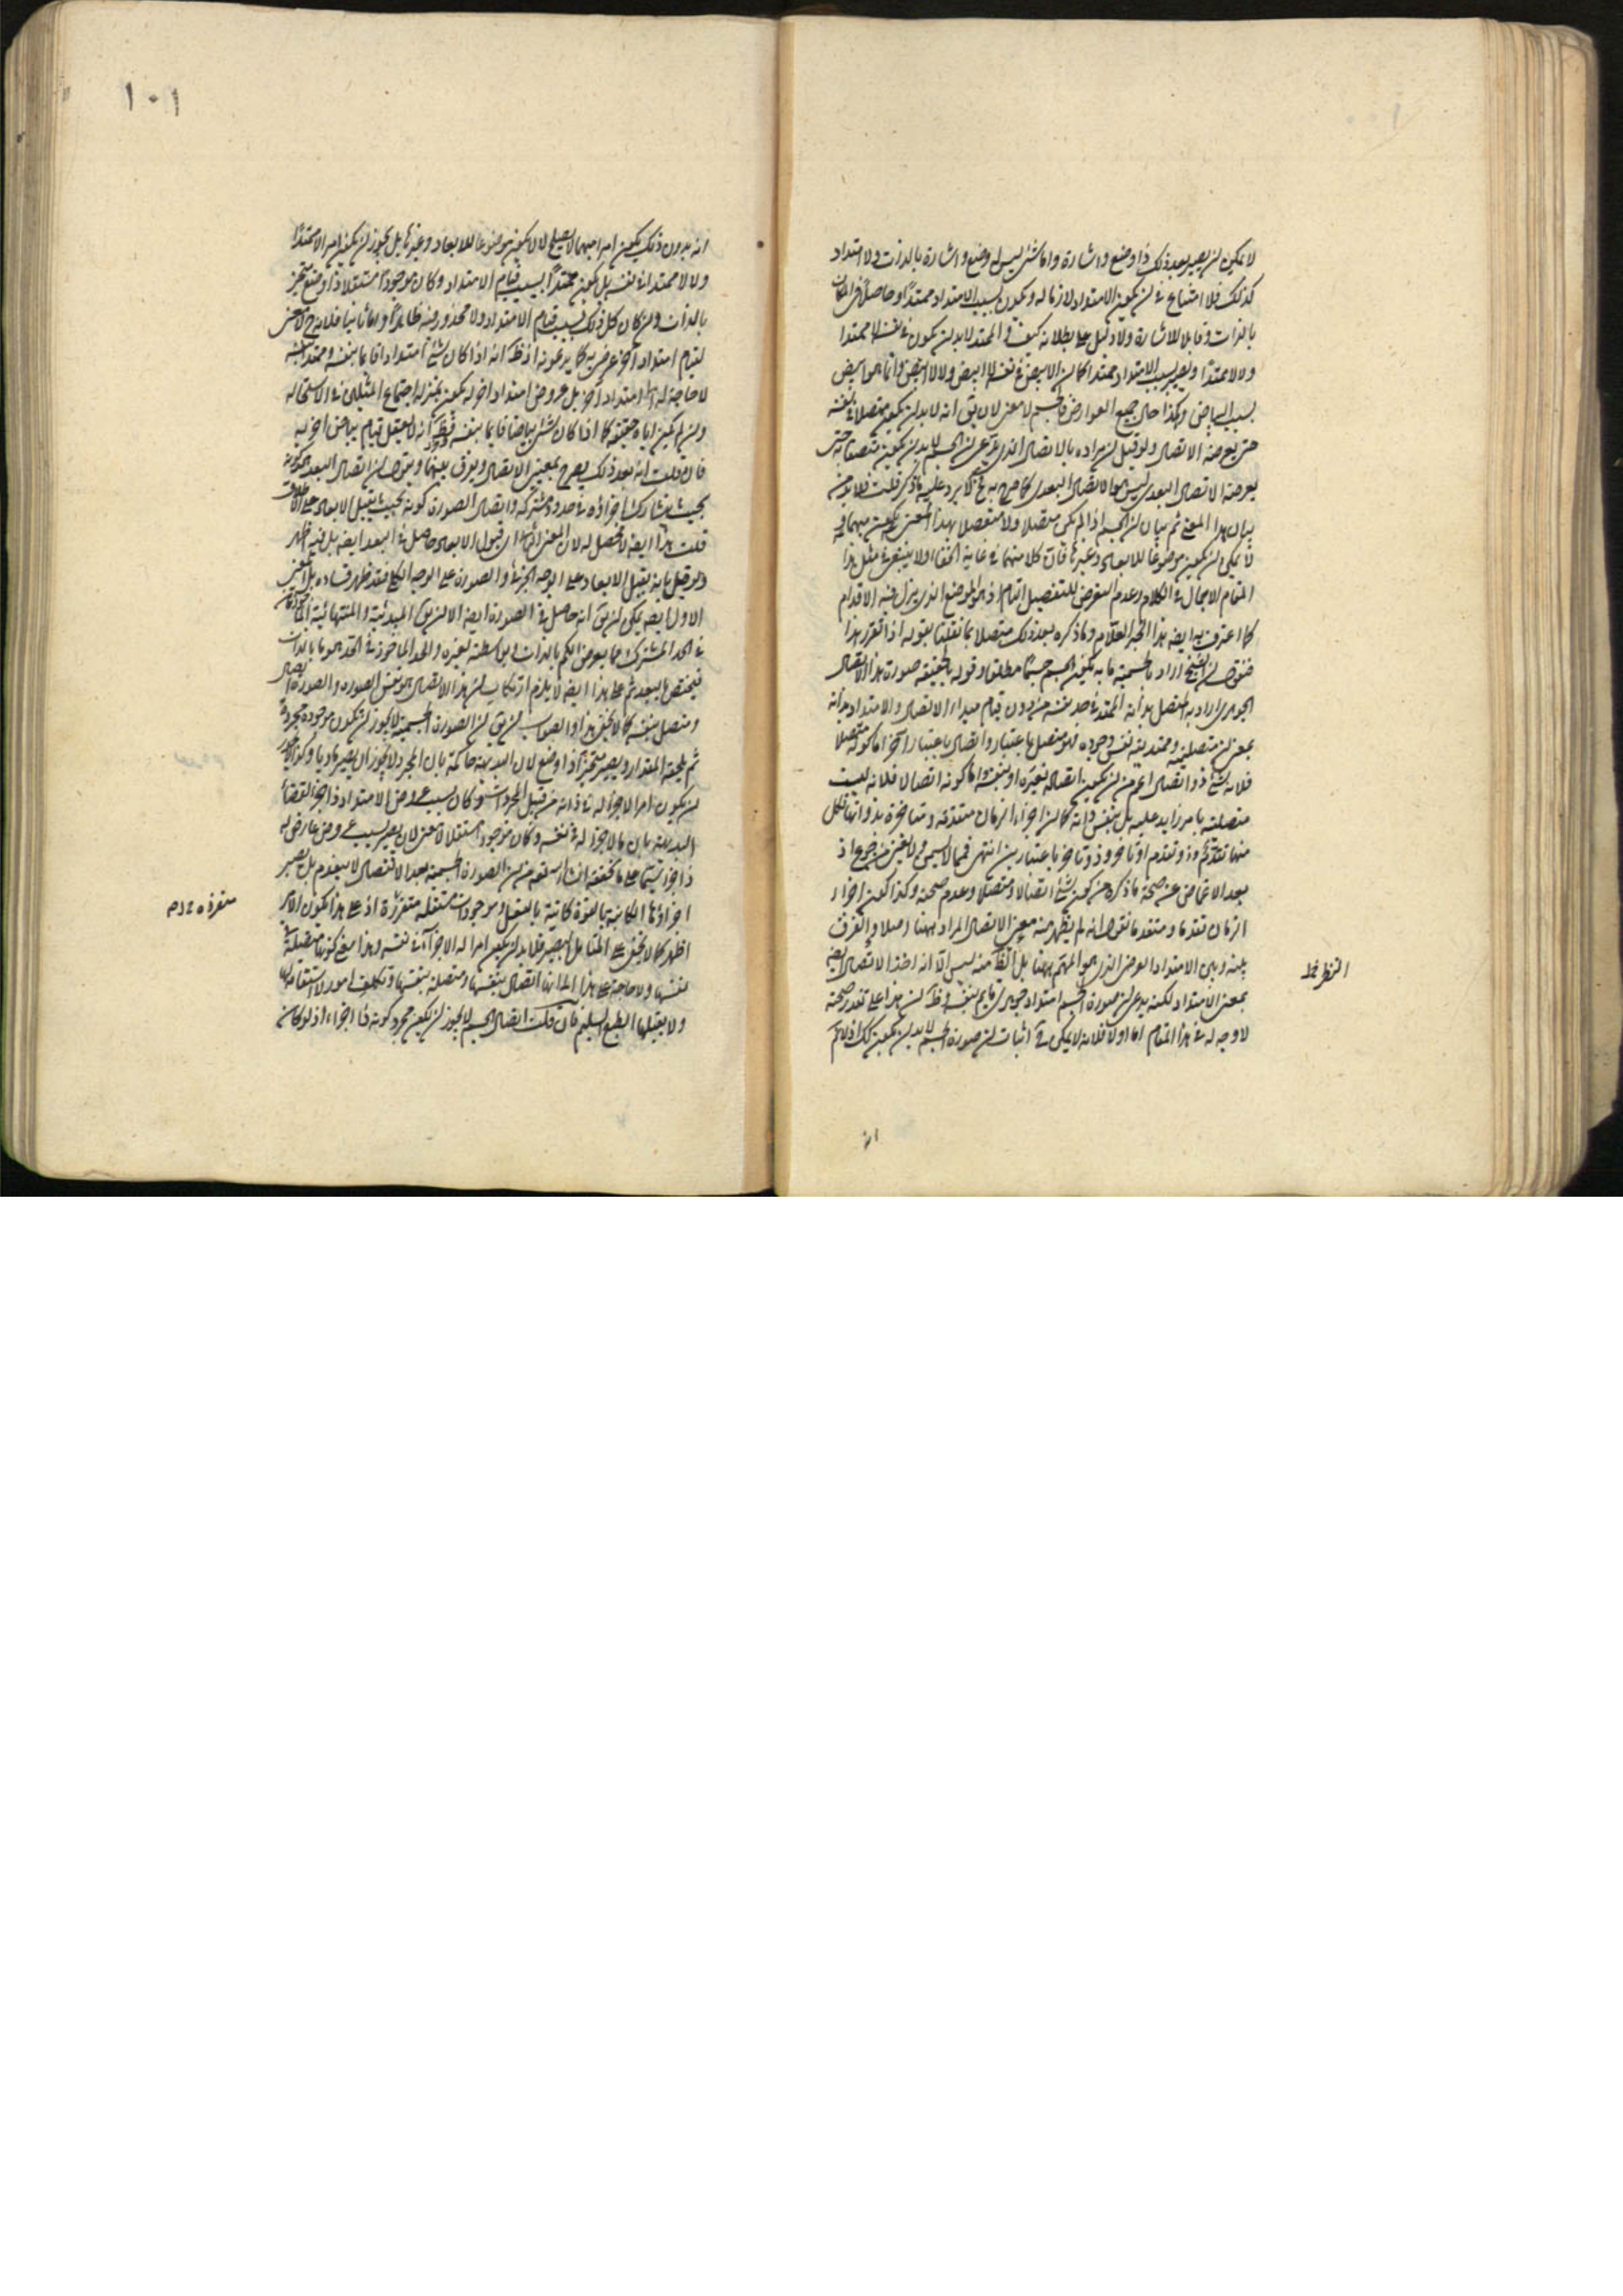 لا يمكن ان يصير بعد ذلك ذا وضع واشارة واما كشئ ليس له وضع واشارة بالذات ولا امتداد
كذلك فلا امتناع في ان يكون الامتداد لازما له ويكون بسبب الامتداد ممتدا وحاصلا في المكان
بالذات وقابلا للاشارة ولا دليل على بطلانه كيف والممتد لابد ان يكون في نفسه لا ممتدا
ولا لا ممتدا ويصير بسبب الامتداد ممتدا كما ان الابيض في نفسه لا ابيض ولا لا ابيض وانما هو ابيض
بسبب البياض وهكذا حال جميع العوارض فالجسم لا معنى لان يق انه لابد ان يكون متصلا في نفسه
حتى يعرضه الاتصال ولو قيل ان مراده بالاتصال الذي يدعي ان الجسم لابد ان يكون متصفا به حتى
يعرضه الاتصال البعدي ليس هو الاتصال البعدي كما صرح به فلا يرد عليه ما ذكر قلت فلابد من
بيان هذا المعنى ثم بيان ان الجسم اذا لم يكن متصلا ولا منفصلا بهذا المعنى يكون مبهما و
لا يمكن ان يكون موضوعا للابعاد وغيرها فان كلا منهما في غاية الخفاء ولا ينبغي في مثل هذا
المقام الاجمال في الكلام وعدم التعرض للتفصيل التام اذ هو الموضع الذي يزل فيه الاقدام
كما اعترف به ايضا هذا الحبر العلام وما ذكره بعد ذلك متصلا بما نقلنا بقوله اذا تقرر هذا
فنقول ان الشيخ اراد بالجسمية ما به يكون الجسم جسما مطلقا وقوله بالحقيقة صورة هذا الاتصال
الجوهري اراد به المتصل بذاته الممتد في حد نفسه من دون قيام مبداء الاتصال والامتداد بذاته
بمعنى ان متصليته وممتديته نفس وجوده فهو متصل باعتبار واتصال باعتبار آخر اما كونه متصلا
فلانه شئ ذو اتصال اعم من ان يكون اتصاله بغيره او بنفسه واما كونه اتصالا فلانه ليست
متصليته بامر زايد عليه بل بنفس ذاته كما ان اجزاء الزمان متقدمة ومتاخرة بذواتها فكل
منها تقدم وذو تقدم او تاخر وذو تاخر باعتبارين انتهى فمما لا يسمن ولا يغني من جوع اذ
بعد الاغماض عن صحة ما ذكره من كون شئ اتصالا ومتصلا وعدم صحته وكذا كون اجزاء
الزمان تقدما ومتقدما نقول انه لم يظهر منه معنى الاتصال المراد ههنا اصلا والفرق
بينه وبين الامتداد العرضي الذي هو المهم ههنا بل الظ منه ليس الا انه اخذ الاتصال ايضا
بمعنى الامتداد لكنه يدعي ان صورة الجسم امتداد جوهري قايم بنفسه وظ ان هذا على تقدير صحته
لا وجه له في هذا المقام اما اولا فلانه لا يكفي في اثبات ان صورة الجسم لابد ان يكون كك اذ لا تم
النظر خط
انه
١٠١
انه بدون ذلك يكون امرا مبهما لا يصلح لان يكون موضوعا للابعاد وغيرها بل يجوز ان يكون امرا لا ممتدا
ولا لا ممتدا في نفسه بل يكون ممتدا بسبب قيام الامتداد وكان موجودا مستقلا ذا وضع متحيز
بالذات وان كان كل ذلك بسبب قيام الامتداد ولا محذور فيه ظاهرا واما ثانيا فلانه ح لا معنى
لقيام امتداد آخر عرضي به كما يدعونه اذ ظ انه اذا كان شئ امتدادا قايما بنفسه وممتدا بنفسه
لا حاجة له الى امتداد آخر بل عروض امتداد آخر له يكون بمنزلة اجتماع المثلين في الاستحالة
وان لم يكن اياه حقيقة كما اذا كان شئ بياضا قايما بنفسه فظ انه لا يعقل قيام بياض آخر به
فان قلت انه بعد ذلك يصرح بمعنى الاتصال ويفرق بينهما ويقول ان اتصال البعد هو كونه
بحيث يتشارك اجزاؤه في حدود مشتركة واتصال الصورة كونه بحيث يقبل الابعاد على الاطلاق
قلت هذا ايضا لا محصل له لان المعنى اي قبول الابعاد حاصل في البعد ايضا بل فيه اظهر
ولو قيل بانه يقبل الابعاد على الوجه الجزئي والصورة على الوجه الكلي فقد ظهر فساده بل المعنى
الاول ايضا يمكن ان يق انه حاصل في الصورة ايضا الا ان يق المبدئية والمنتهائية الماخوذتان
في الحد المشترك مما يعرض الكم بالذات وبواسطته لغيره والحد الماخوذ في الحد هو ما بالذات
فيختص بالبعد ثم على هذا ايضا لا يلزم ارتكاب ان هذا الاتصال هو نفس الصورة والصورة اتصال
ومتصل بنفسه كما لا يخفى هذا والصواب ان يق ان الصورة الجسمية لا يجوز ان تكون موجودة مجردة
ثم يلحقه المقدار ويصير متحيزا ذا وضع لان البديهة حاكمة بان المجرد لا يجوز ان يصير ماديا وكذا لا يجوز
ان يكون امرا لا جزء له في ذاته من قبيل المجردات وكان بسبب عروض الامتداد ذا جزء لقضاء
البديهة بان ما لا جزء له في نفسه وكان موجودا مستقلا لا معنى لان يصير بسبب عروض عارض له
ذا جزء سيما على ما يحققه انشاء الله تعه من ان الصورة الجسمية بعد الانفصال لا ينعدم بل يصير
اجزاؤها الكاينة بالقوة كاينة بالفعل وموجودات مستقلة متقررة اذ على هذا يكون الامر
اظهر كما لا يخفى على المتامل البصير فلابد ان يكون امرا له الاجزاء في نفسه وهذا معنى كونها متصلة في
نفسها ولا حاجة على هذا الى انها اتصال بنفسها ومتصلة بنفسها وتكلف امور لا استقامة لها
ولا يقبلها الطبع السليم فان قلت اتصال الجسم لا يجوز ان يكون مجرد كونه ذا اجزاء اذ لو كان